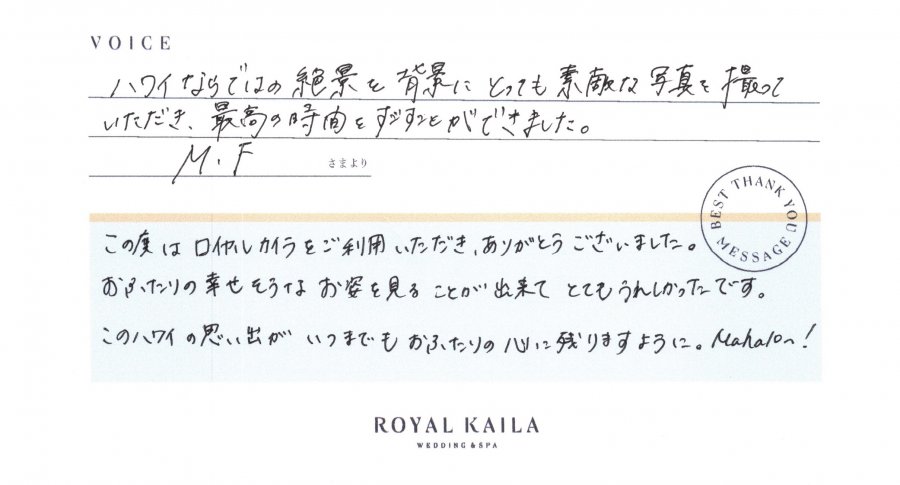 VOICE
ハワイならではの絶景を背景にとっても素敵な写真を撮って
いただき、最高の時間をすごすことができました。
M.F さまより
BEST THANK YOU MESSAGE
この度はロイヤルカイラをご利用いただき、ありがとうございました。
おふたりの幸せそうなお姿を見ることが出来てとてもうれしかったです。
このハワイの思い出がいつまでもおふたりの心に残りますように。Mahalo〜!
ROYAL KAILA
WEDDING & SPA